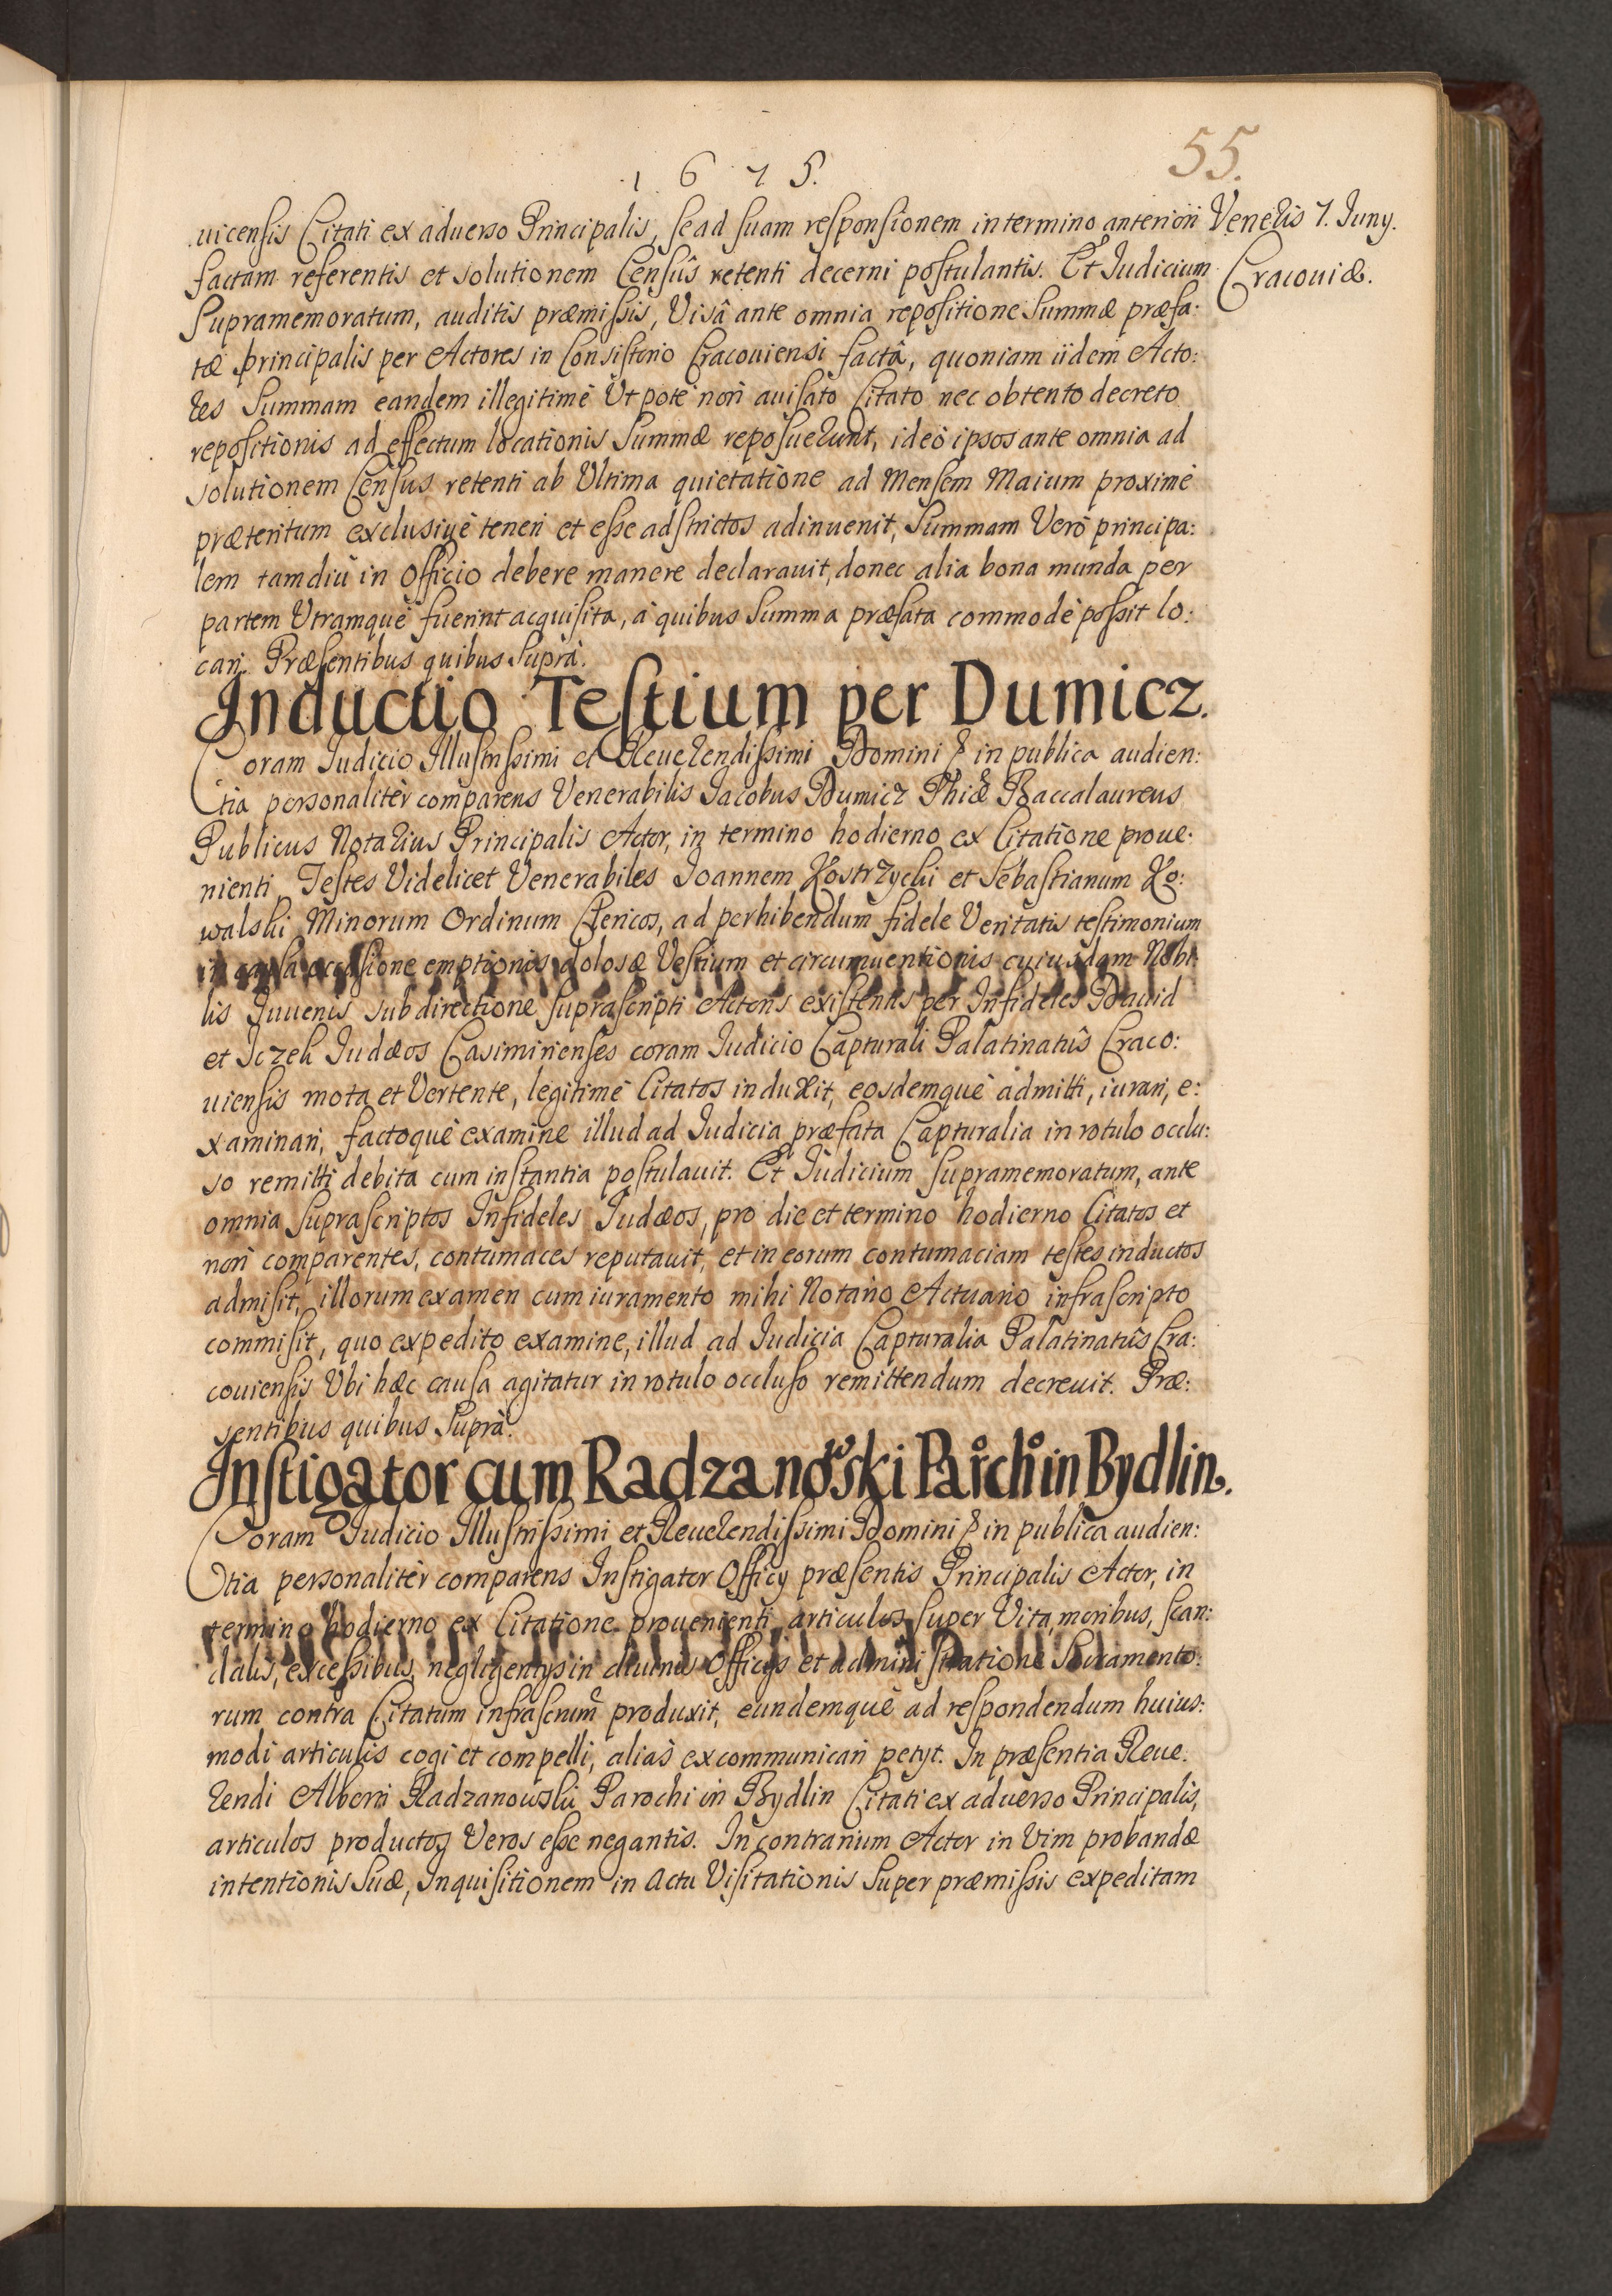 55.
1 6 7 5.
Veneris 7. Iuny.
Cracouiæ.
uicensis Citati ex aduerso Principalis, se ad suam responsionem in termino anteriori
factam referentis et solutionem Censûs retenti decerni postulantis. Et Iudicium
Supramemoratum, auditis præmissis, Visâ ante omnia repositione Summæ præfa:
tæ principalis per Actores in Consistorio Cracouiensi factâ, quoniam iidem Acto:
res Summam eandem illegitimè Vt pote non auisato Citato nec obtento decreto
repositionis ad effectum locationis Summæ reposuerunt, ideò ipsos ante omnia ad
solutionem Censûs retenti ab Vltima quietatione ad Mensem Maium proximè
præteritum exclusiuè teneri et esse adstrictos adinuenit, Summam Verò principa:
lem tamdiù in Officio debere manere declarauit, donec alia bona munda per
partem Vtramquè fuerint acquisita, à quibus Summa præfata commodè possit lo:
cari. Præsentibus quibus Suprà.
Inductio Testium per Dumicz.
Coram Iudicio Illustrissimi et Reuerendissimi Domini & in publica audien:
tia personalitèr comparens Venerabilis Iacobus Dumicz Phiæ Baccalaureus
Publicus Notarius Principalis Actor, in termino hodierno ex Citatione proue:
nienti, Testes Videlicet Venerabiles Ioannem Kostrzycki et Sebastianum Ko:
walski Minorum Ordinum Clericos, ad perhibendum fidele Veritatis testimonium
in causa occasione emptionis dolosæ Vestium et circumuentionis cuiusdam Nobi:
lis Iuuenis sub directione suprascripti Actoris existentis per Infideles Dauid
et Iczek Iudæos Casimirienses coram Iudicio Capturali Palatinatûs Craco:
uiensis mota et Vertente, legitimè Citatos induxit, eosdemquè admitti, iurari, e:
xaminari, factoquè examine illud ad Iudicia præfata Capturalia in rotulo occlu:
so remitti debita cum instantia postulauit. Et Iudicium supramemoratum, ante
omnia Suprascriptos Infideles Iudæos, pro die et termino hodierno Citatos et
non comparentes, contumaces reputauit, et in eorum contumaciam testes inductos
admisit, illorum examen cum iuramento mihi Notario Actuario infrascripto
commisit, quo expedito examine, illud ad Iudicia Capturalia Palatinatûs Cra:
couiensis Vbi hæc causa agitatur in rotulo occluso remittendum decreuit. Præ:
sentibus quibus Suprà.
Instigator cum Radzanowski Paroch in Bydlin.
Coram Iudicio Illustrissimi et Reuerendissimi Domini & in publica audien:
tia personalitèr comparens Instigator Officy præsentis Principalis Actor, in
termino hodierno ex Citatione prouenienti, articulos super Vita, moribus, scan:
dalis, excessibus, negligentys in diuinis Officys et administratione Sacramento:
rum contra Citatum infrascrium produxit, eundemquè ad respondendum huius:
modi articulis cogi et compelli, aliàs excommunicari petyt. In præsentia Reue:
rendi Alberti Radzanowski Parochi in Bydlin Citati ex aduerso Principalis,
articulos productos Veros esse negantis. In contrarium Actor in Vim probandæ
intentionis Suæ, Inquisitionem in actu Visitationis Super præmissis expeditam